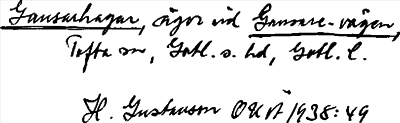 Gansarhagar, ägor vid Gansare-vägen,
Tofta sn, Gotl. s. hd, Gotl. l.
H. Gustavson OUÅ 1938:49